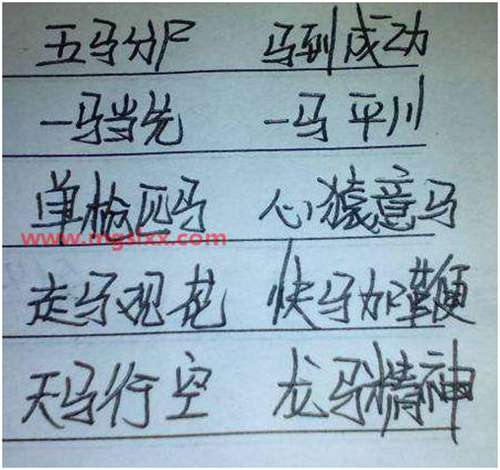 五马分尸 马到成功
一马当先 一马平川
单枪匹马 心猿意马
www.mgslxx.com
走马观花 快马加鞭
天马行空 龙马精神